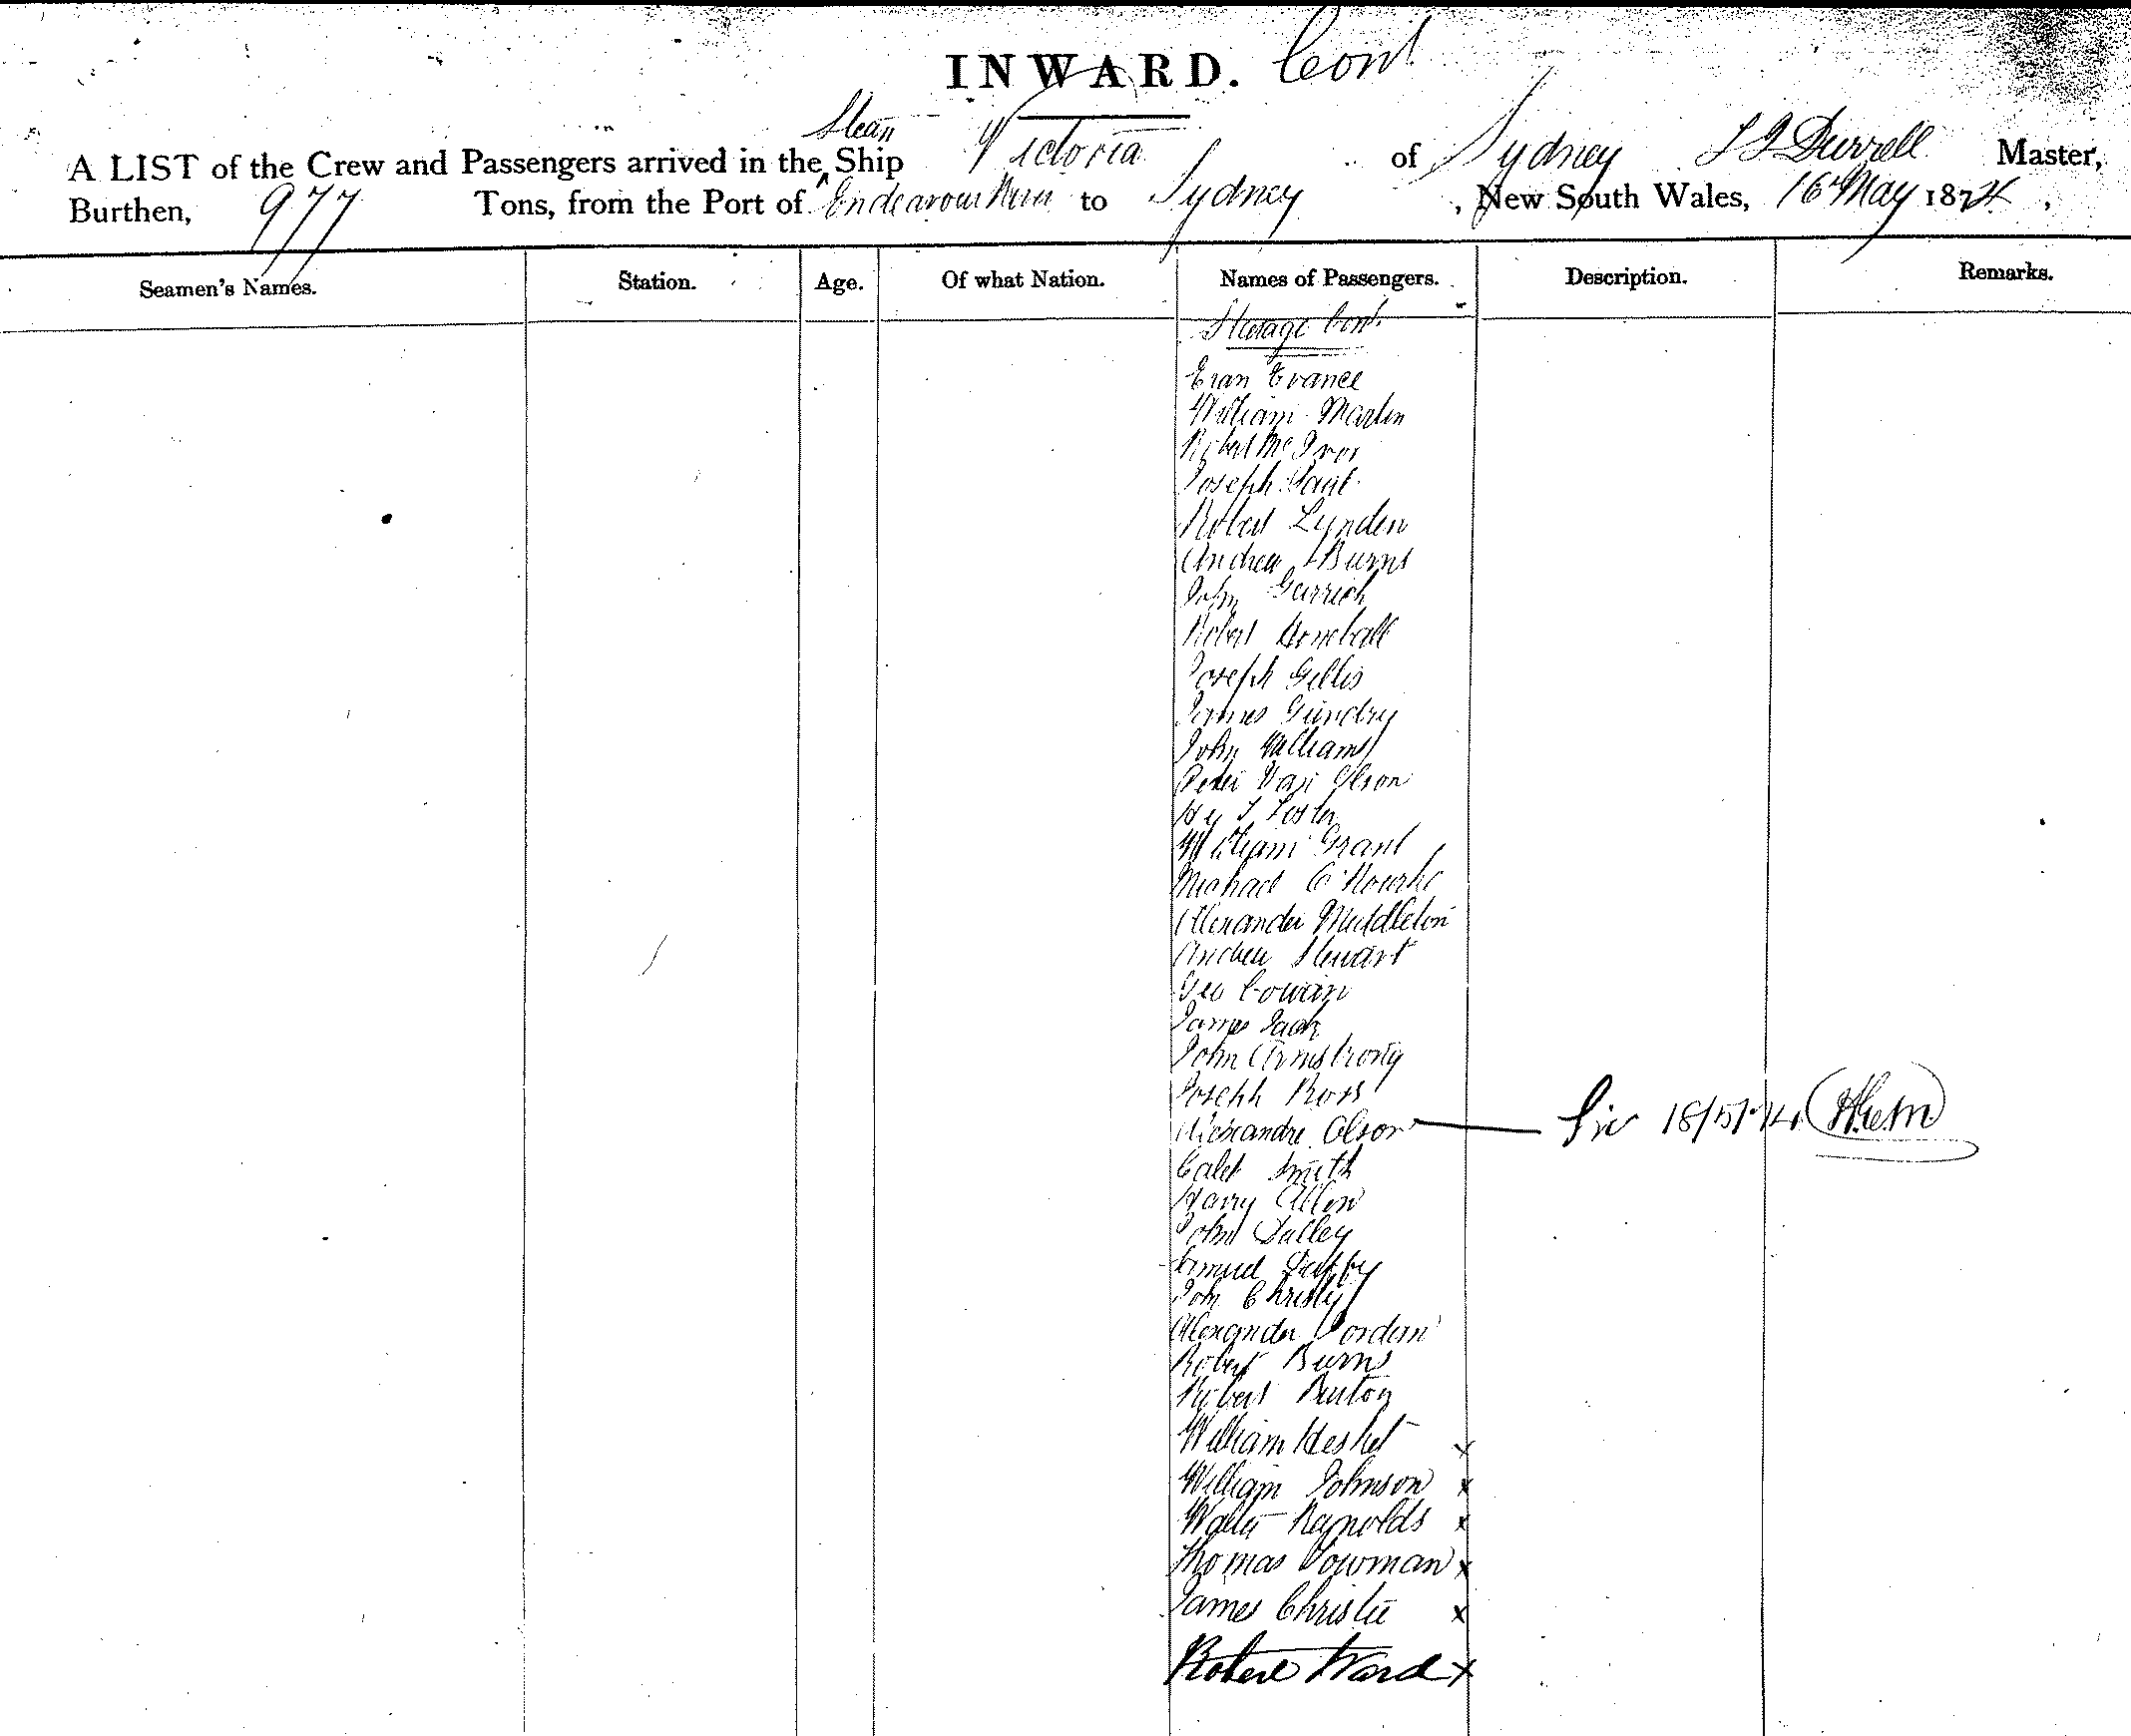 INWARD. Cont
Steam
A LIST of the Crew and Passengers arrived in the Ship Victoria of Sydney Master,
Burthen, 977 Tons, from the Port of Endeavour River to Sydney, New South Wales, 16 May 1874,
Seamen's Names. Station. Age. Of what Nation. Names of Passengers. Description. Remarks.
Steerage Cont.
Evan Evance
William Martin
Robert McIvor
Joseph
Robert Lynden
Andrew Burns
John Garrick
Robert
Joseph Gillis
James Gundry
John Williams
Peter Van Olson
Hy Foster
William Grant
Michael O'Rourke
Alexander Middleton
Andrew Stewart
Geo Cowan
James Jack
John Armstrong
Joseph Ross
Alexandre Olson 18/5/74
Caleb Smith
Harry Allen
John
Samuel Duffy
John Christy
Alexander
Robert Burns
Robert Burton
William Hesket x
William Johnson x
Walter Reynolds x
Thomas x
James Christie x
Robert Ward x